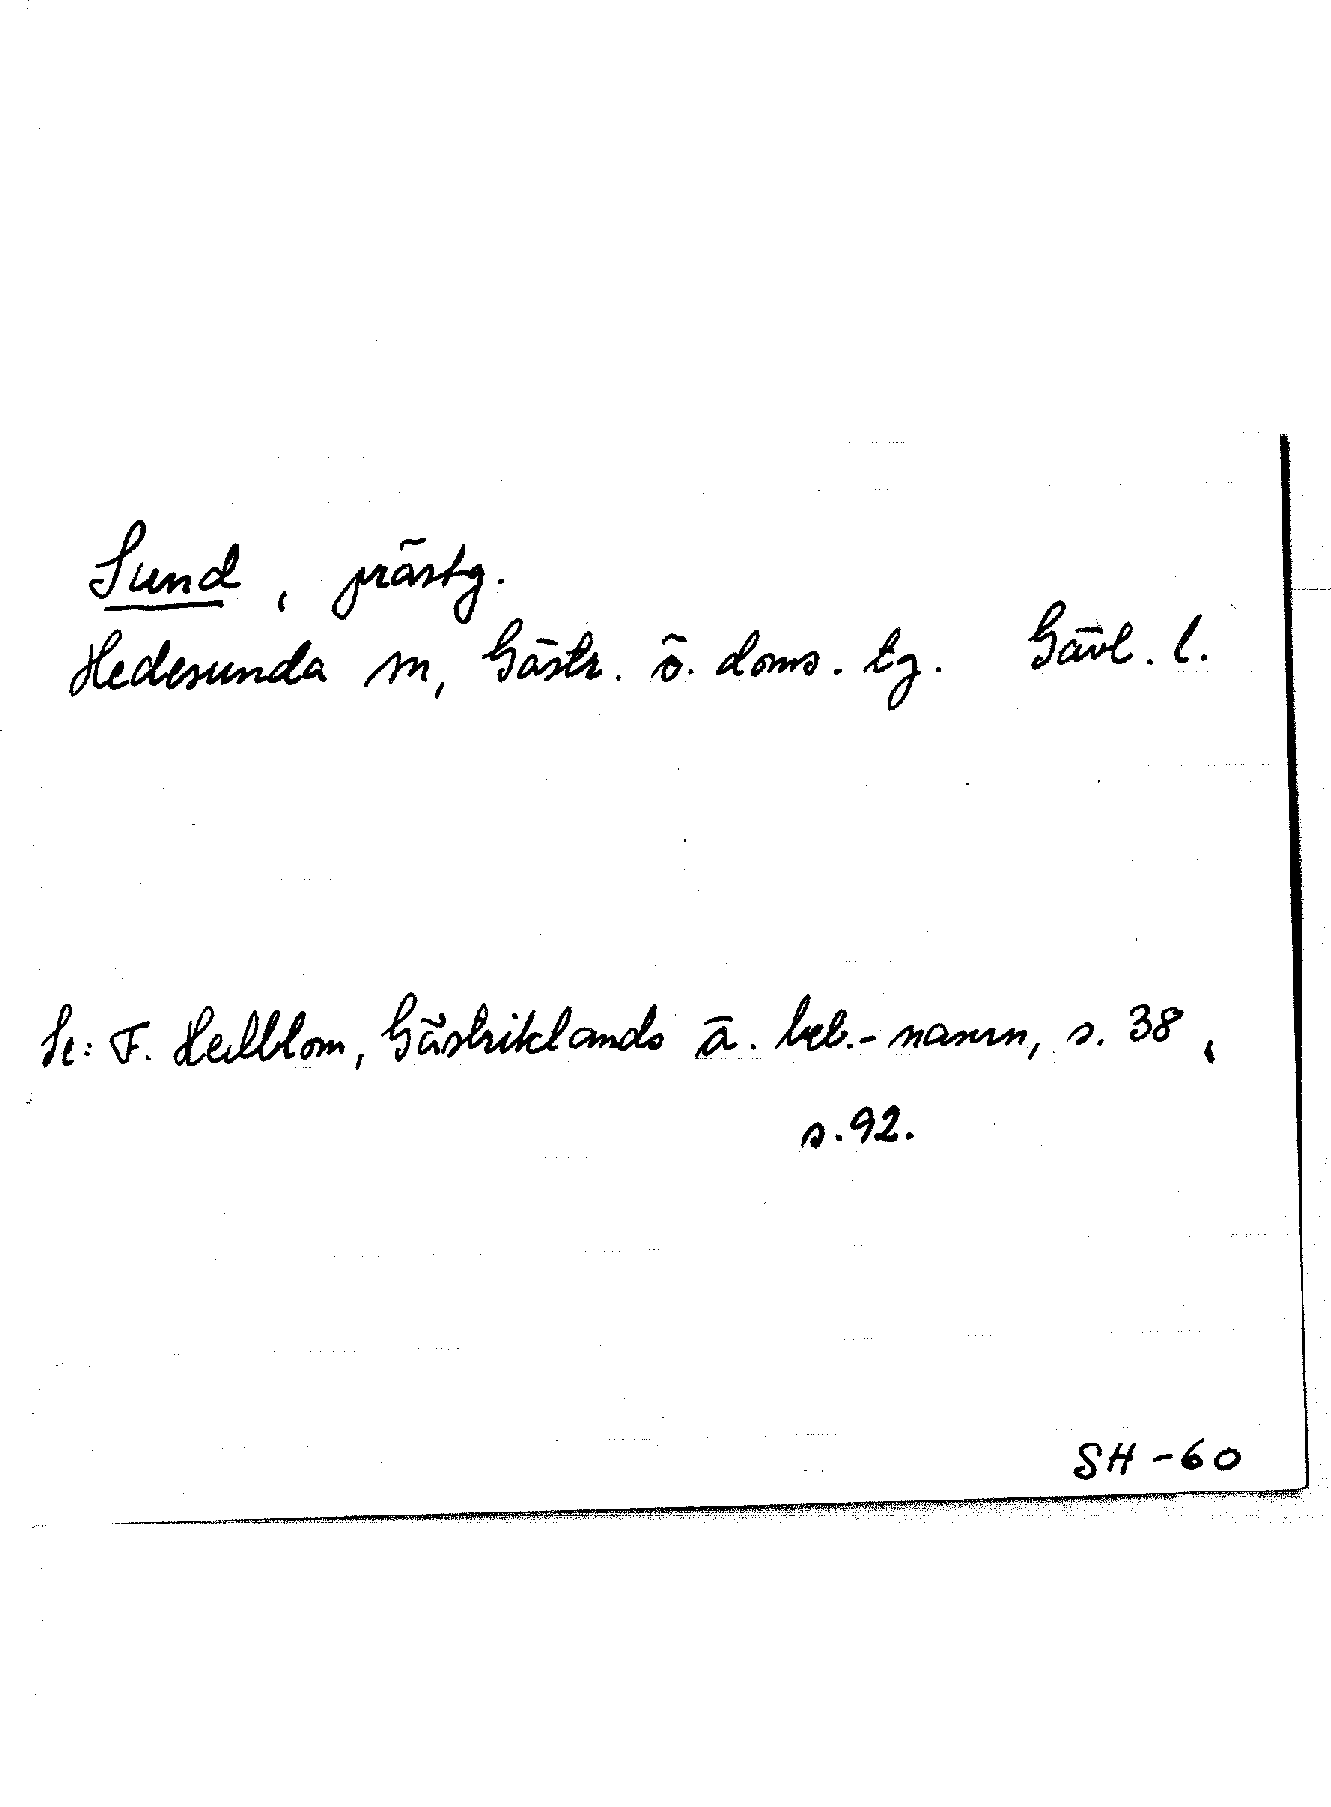 Sund, prästg.
Hedesunda sn, Gästr. ö. doms. tg. Gävl. l.
Se: F. Hedblom, Gästriklands ä. beb.-namn, s. 38,
s. 92.
SH-60